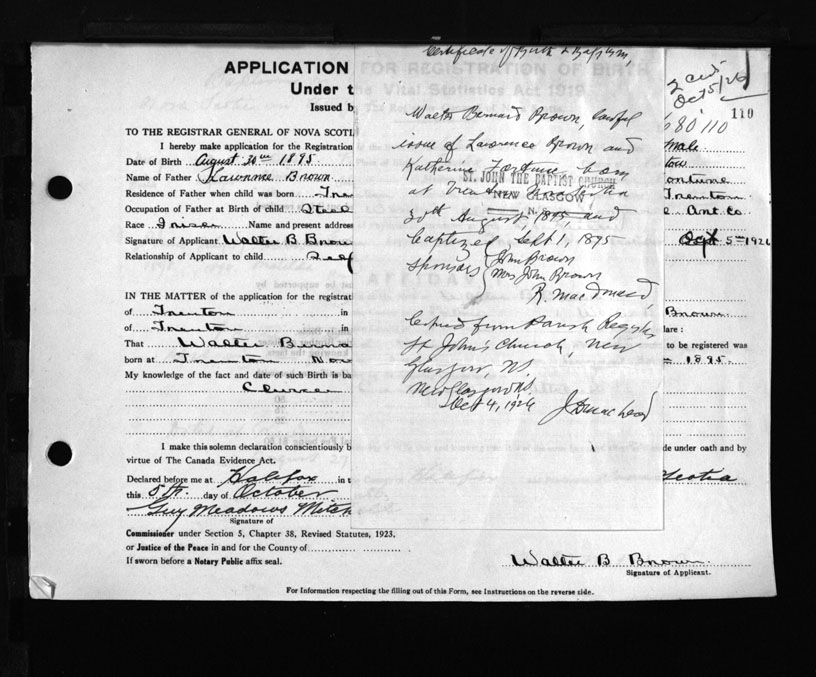 Certificate of Birth & Baptism,
APPLICATION FOR REGISTRATION OF BIRTH
Under the Vital Statistics Act 1919
Issued b
Oct 5/26
680110
110
TO THE REGISTRAR GENERAL OF NOVA SCOTI
I hereby make application for the Registration
Date of Birth August 30th 1895
Name of Father Lawrence Brown
Residence of Father when child was born Tre
Occupation of Father at Birth of child Steel
Race Irish Name and present address
Signature of Applicant Walter B Brow
Relationship of Applicant to child Self
male
Trenton
Oct 5th 1926
IN THE MATTER of the application for the registrat
of Trenton in
of Trenton in
That Walter Berna
born at Trenton Nov
My knowledge of the fact and date of such Birth is ba
Church
Brown
lare :
to be registered was
1895.
Walter Bernard Brown, lawful
issue of Lawrence Brown and
Katherine Fortune, born
at Trenton, Nova Scotia
30th August 1895, and
baptized Sept 1, 1895
Sponsors John Brown
Mrs John Brown
R. MacDonald
ST. JOHN THE BAPTIST CHURCH
NEW GLASGOW
N.S.
Copied from Parish Register
St John's Church, New
Glasgow, NS.
New Glasgow NS.
Oct 4, 1926
I make this solemn declaration conscientiously b
de under oath and by
virtue of The Canada Evidence Act.
Declared before me at Halifax in t
Scotia
this 5th day of October
Guy Meadows Mitch
Signature of
Commissioner under Section 5, Chapter 38, Revised Statutes, 1923,
or Justice of the Peace in and for the County of
If sworn before a Notary Public affix seal.
Walter B Brown.
Signature of Applicant.
For Information respecting the filling out of this Form, see Instructions on the reverse side.